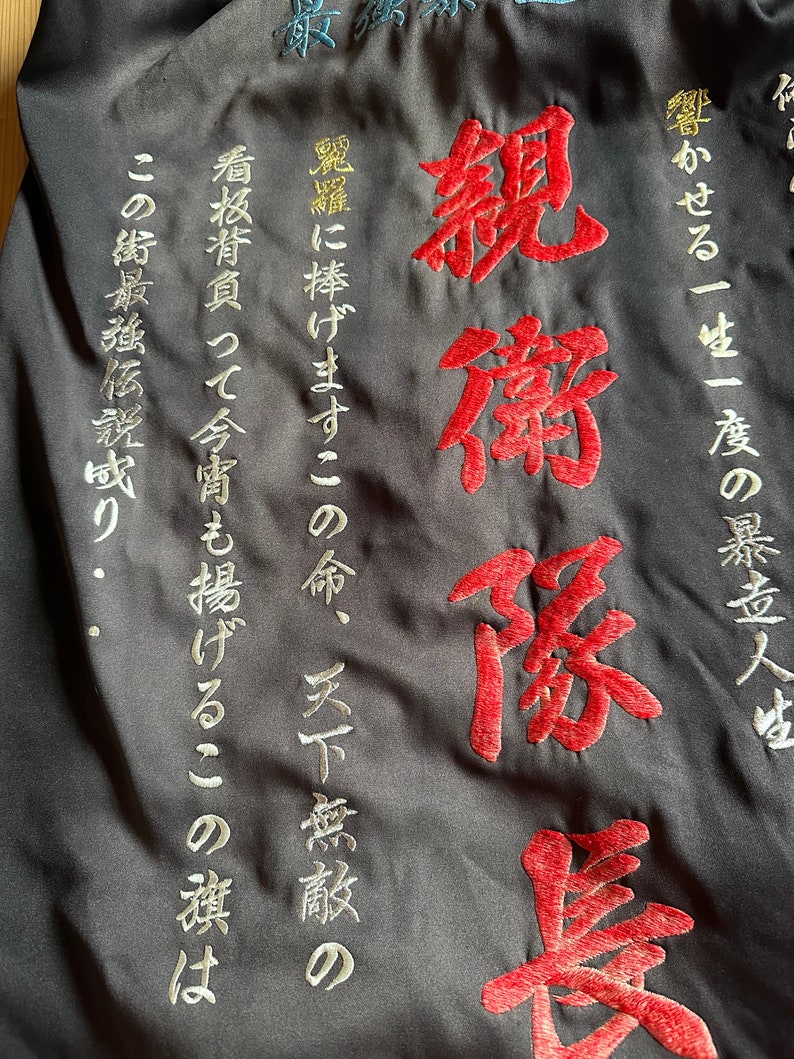 最強暴
響かせる一生一度の暴走人生
親衛隊長
麗羅に捧げますこの命、天下無敵の
看板背負って今宵も揚げるこの旗は
この街最強伝説成り・・